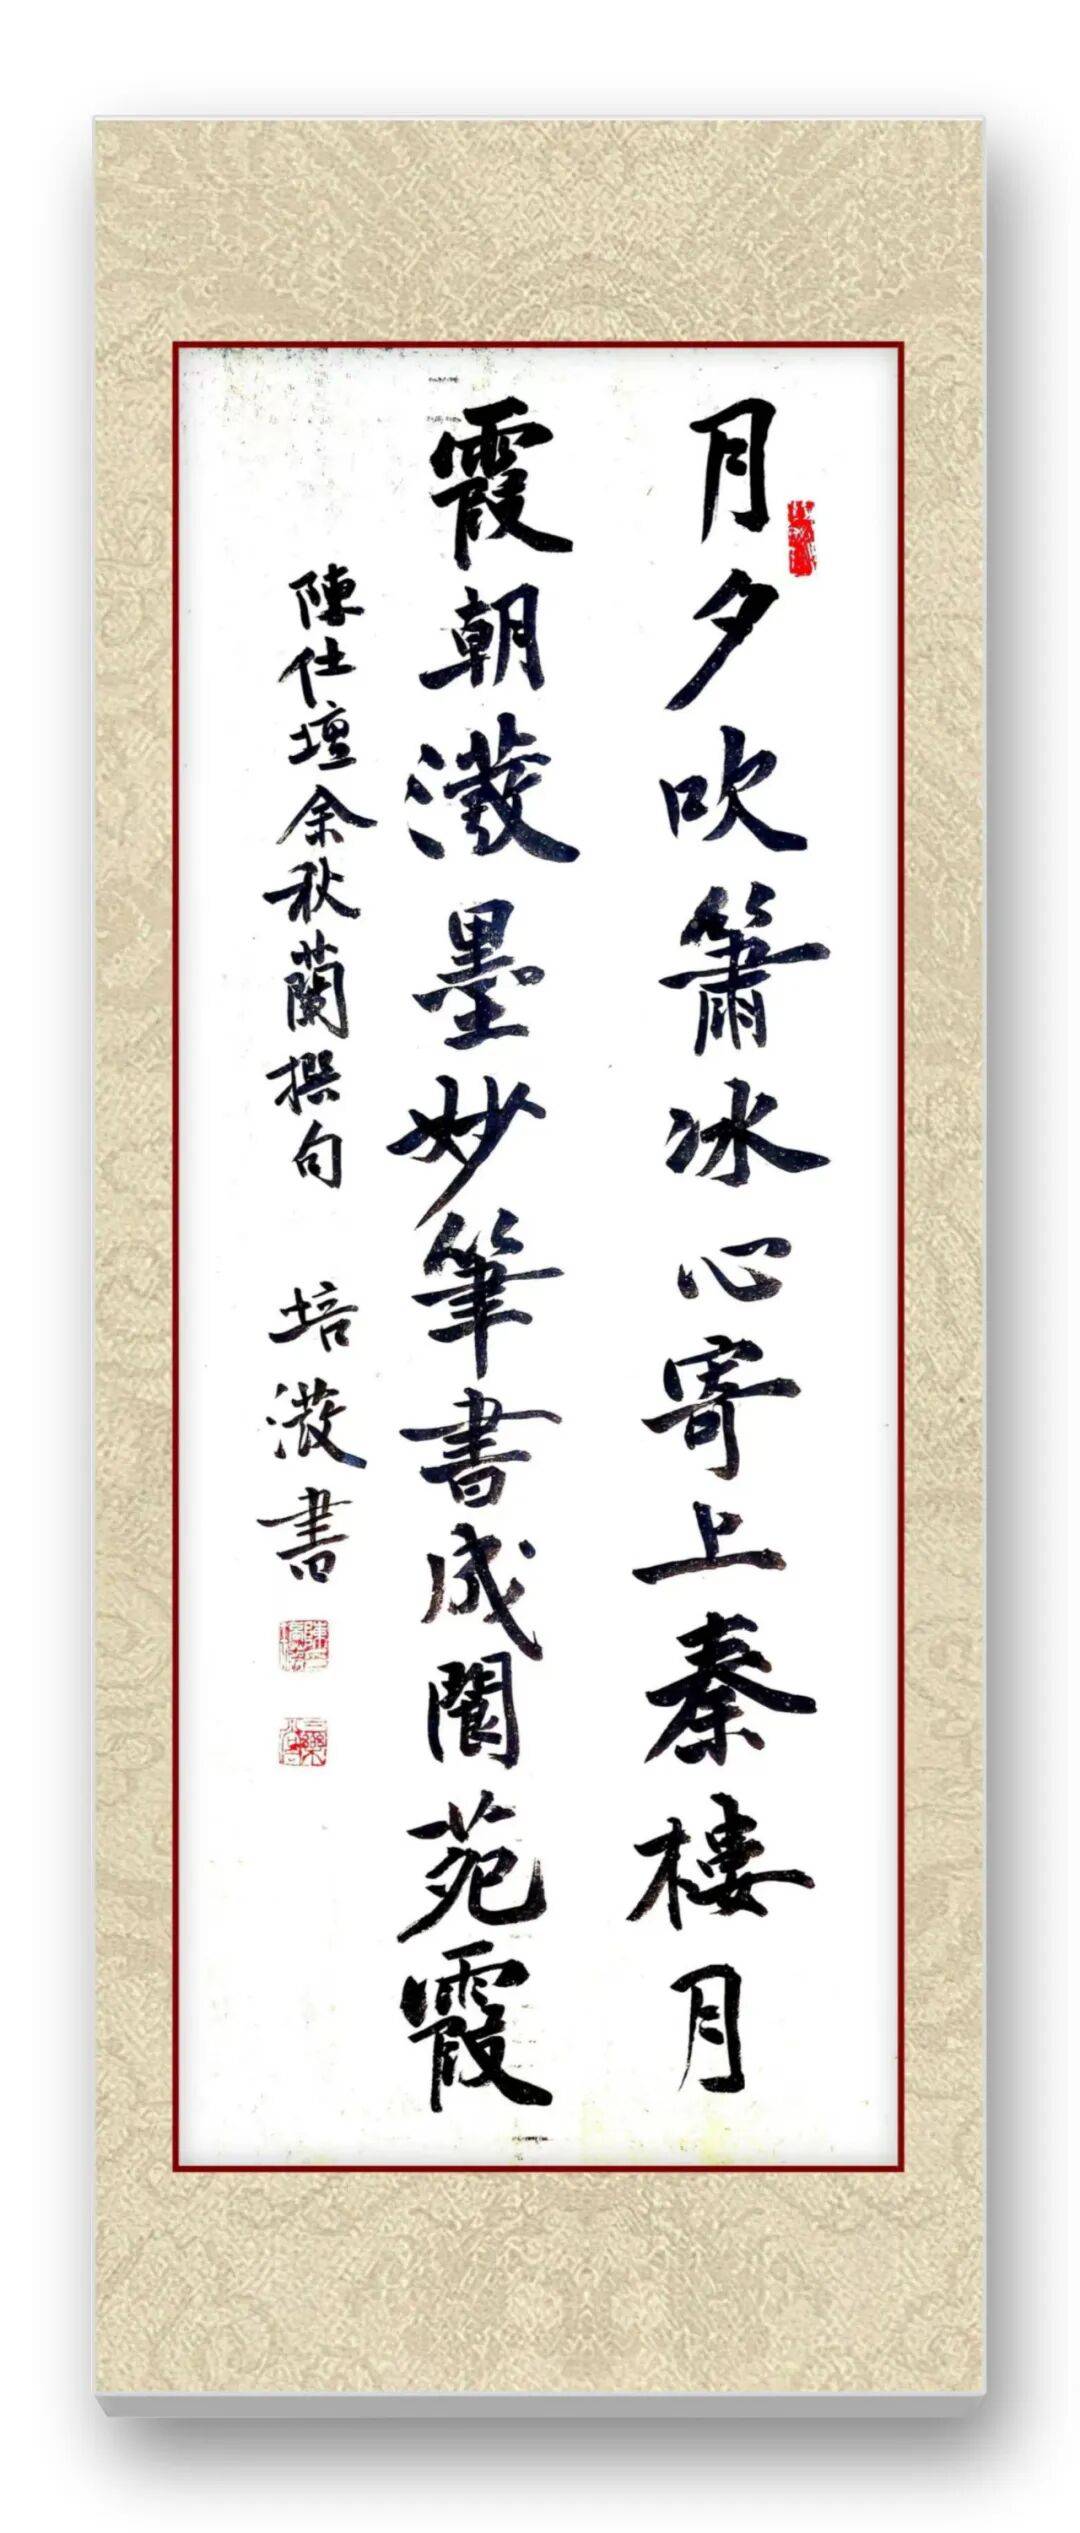 月夕吹簫冰心寄上秦樓月
霞朝潑墨妙筆書成閬苑霞
陳仕壇余秋蘭撰句 培潑書